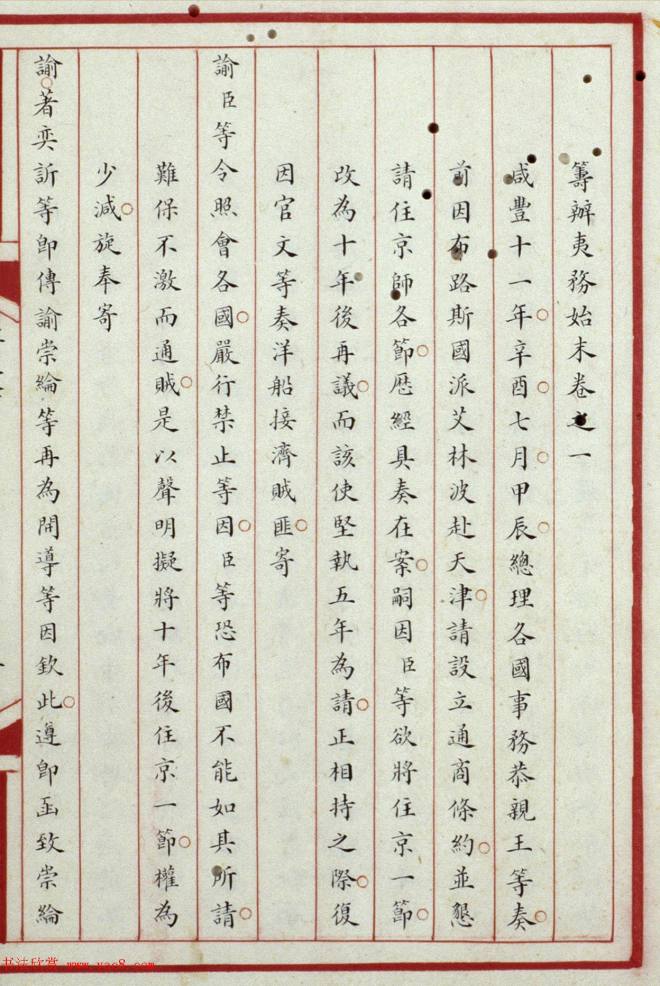 籌辦夷務始末卷之一
咸豐十一年辛酉七月甲辰總理各國事務恭親王等奏
前因布路斯國派艾林波赴天津請設立通商條約並懇
請住京師各節歷經具奏在案嗣因臣等欲將住京一節
改為十年後再議而該使堅執五年為請正相持之際復
因官文等奏洋船接濟賊匪寄
諭臣等令照會各國嚴行禁止等因臣等恐布國不能如其所請
難保不激而通賊是以聲明擬將十年後住京一節權為
少減旋奉寄
諭著奕訢等卽傳諭崇綸等再為開導等因欽此遵卽函致崇綸
书法欣赏 www.yac8.com